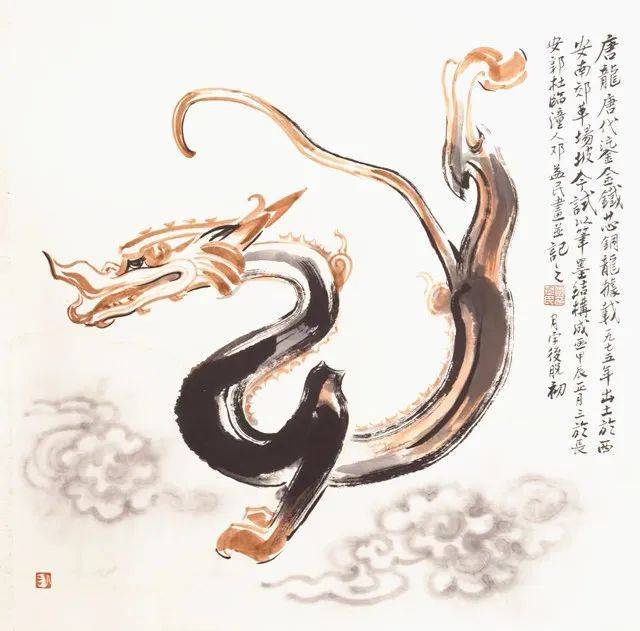 唐龍唐代鎏金鐵芯銅龍據載一九七五年出土於西
安南郊草場坡今試以筆墨結構成画甲辰正月三於長
安郭杜臨潼人邓益民畫並記之
月字後脱初